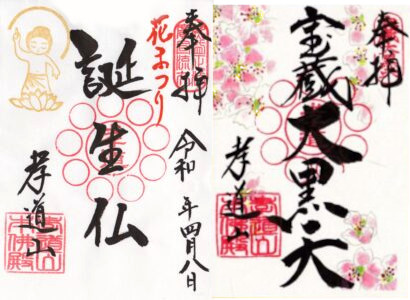 奉拝
花まつり
誕生仏
令和 年四月八日
孝道山
奉拝
宝蔵
大黒天
孝道山